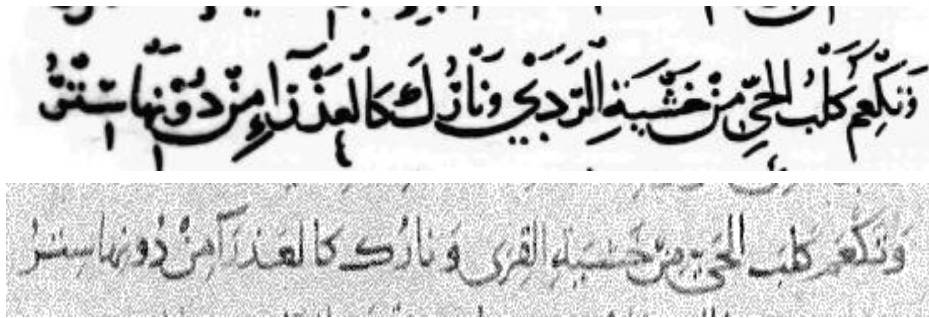 وَتَكْعَم كَلْبَ الحَيِّ مِنْ خَشْيَةِ الرَّدَي وَنَارُكَ كَالْعَذْرَاءِ مِنْ دُوْنِهَا سِتْرُ
وَتَكْعَم كَلبَ الحَيّ مِنْ خَشيَةِ القِرى وَنارُك كالعَذرَآءِ مِنْ دُونِها سِترُ